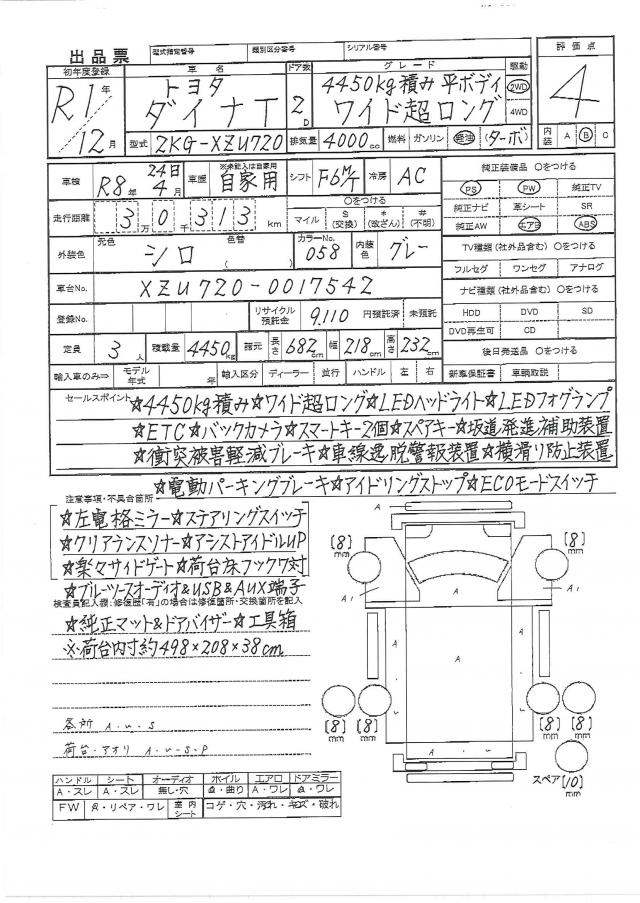 出品票 型式指定番号 類別区分番号 シリアル番号
評価点
初年度登録 車名 ドア数 グレード 駆動
R1年 トヨタ 2D 4450kg積み 平ボディ 2WD 4
12月 ダイナT ワイド超ロング 4WD
型式 2KG-XZU720 排気量 4000cc 燃料 ガソリン 軽油 (ターボ) 内装 A B C
車検 R8年 24日 4月 車歴 ※未記入は自家用 自家用 シフト F6M/T 冷房 AC
純正装備品 〇をつける
PS PW 純正TV
走行距離 3万0千313km 〇をつける マイル $(交換) *(改ざん) #(不明)
純正ナビ 革シート SR
純正AW エアB ABS
外装色 元色 シロ 色替( カラーNo. 058 内装色 グレー
TV種類(社外品含む) 〇をつける
フルセグ ワンセグ アナログ
車台No. XZU720-0017542
ナビ種類(社外品含む) 〇をつける
登録No. リサイクル預託金 9,110 円預託済 未預託
HDD DVD SD
DVD再生可 CD
定員 3人 積載量 4450kg 諸元 長さ 682cm 幅 218cm 高さ 232cm
後日発送品 〇をつける
輸入車のみ⇒ モデル年式 年 輸入区分 ディーラー 並行 ハンドル 左 右 新車保証書 車輌取説
セールスポイント ☆4450kg積み☆ワイド超ロング☆LEDヘッドライト☆LEDフォグランプ
☆ETC☆バックカメラ☆スマートキー2個☆スペアキー☆坂道発進補助装置
☆衝突被害軽減ブレーキ☆車線逸脱警報装置☆横滑り防止装置
☆電動パーキングブレーキ☆アイドリングストップ☆ECOモードスイッチ
注意事項・不具合箇所
☆左電格ミラー☆ステアリングスイッチ
☆クリアランスソナー☆アシストアイドルUP
☆楽々サイドゲート☆荷台床フック7対
☆ブルーツースオーディオ&USB&AUX端子
検査員記入欄:修復歴「有」の場合は修復箇所・交換箇所を記入
☆純正マット&ドアバイザー☆工具箱
※荷台内寸約498×208×38cm
各所 A.U.S
荷台・アオリ A.U.S.P
A
[8]mm [8]mm
A1 A A1
A A
[8]mm [8]mm [8]mm [8]mm
A.U
スペア[10]mm
ハンドル シート オーディオ ホイル エアロ ドアミラー
A・スレ A・スレ 無し・穴 曲り A・ワレ ワレ
FW リペア・ワレ 室内シート コゲ・穴・汚れ・キズ・破れ